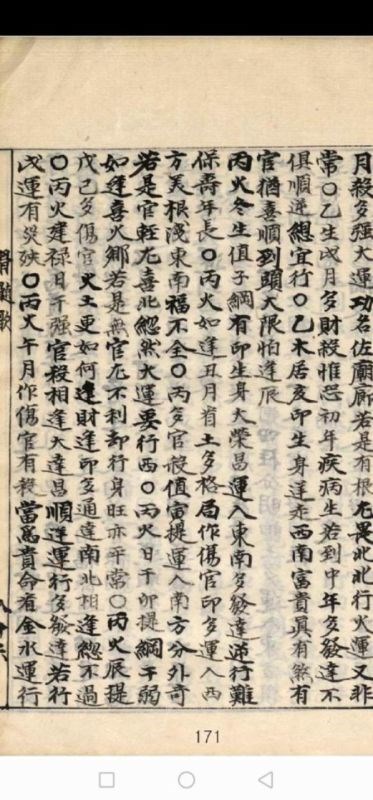 月殺多强大運功名佐廟廊若是有根尤畏北北行火運又非
常〇乙生戌月多財殺惟恐初年疾病生若到中年多發達不
俱順逆總宜行〇乙木居亥印生身運乖西南富貴眞有煞有
官猶喜順到頭大限怕逢辰
丙火冬生值子綱有印生身大榮昌運入東南多發達逆行難
保壽年長〇丙火如逢丑月省土多格局作傷官印多運入西
方美根淺東南福不全〇丙多官殺值寅提運入南方分外奇
若是官輕尤喜北忽然大運要行西〇丙火日干卯提綱干弱
如逢喜火鄉若是無官尤不利卸行身旺亦平常〇丙火辰提
戊己多傷官火土更如何逢財逢印多通達南北相逢總不過
〇丙火建禄日干强官殺相逢大達昌順逆運行多發達若行
戌運有災殃〇丙火午月作傷官有殺當爲貴命看金水運行
骨髓歌
171